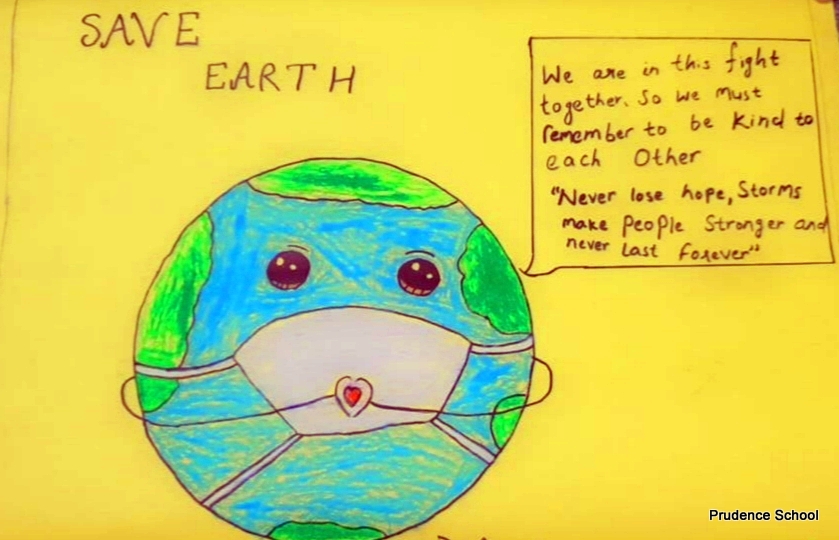 SAVE
EARTH
We are in this fight
together. So we must
remember to be Kind to
each Other
"Never lose hope, Storms
make People Stronger and
never last forever"
Prudence School